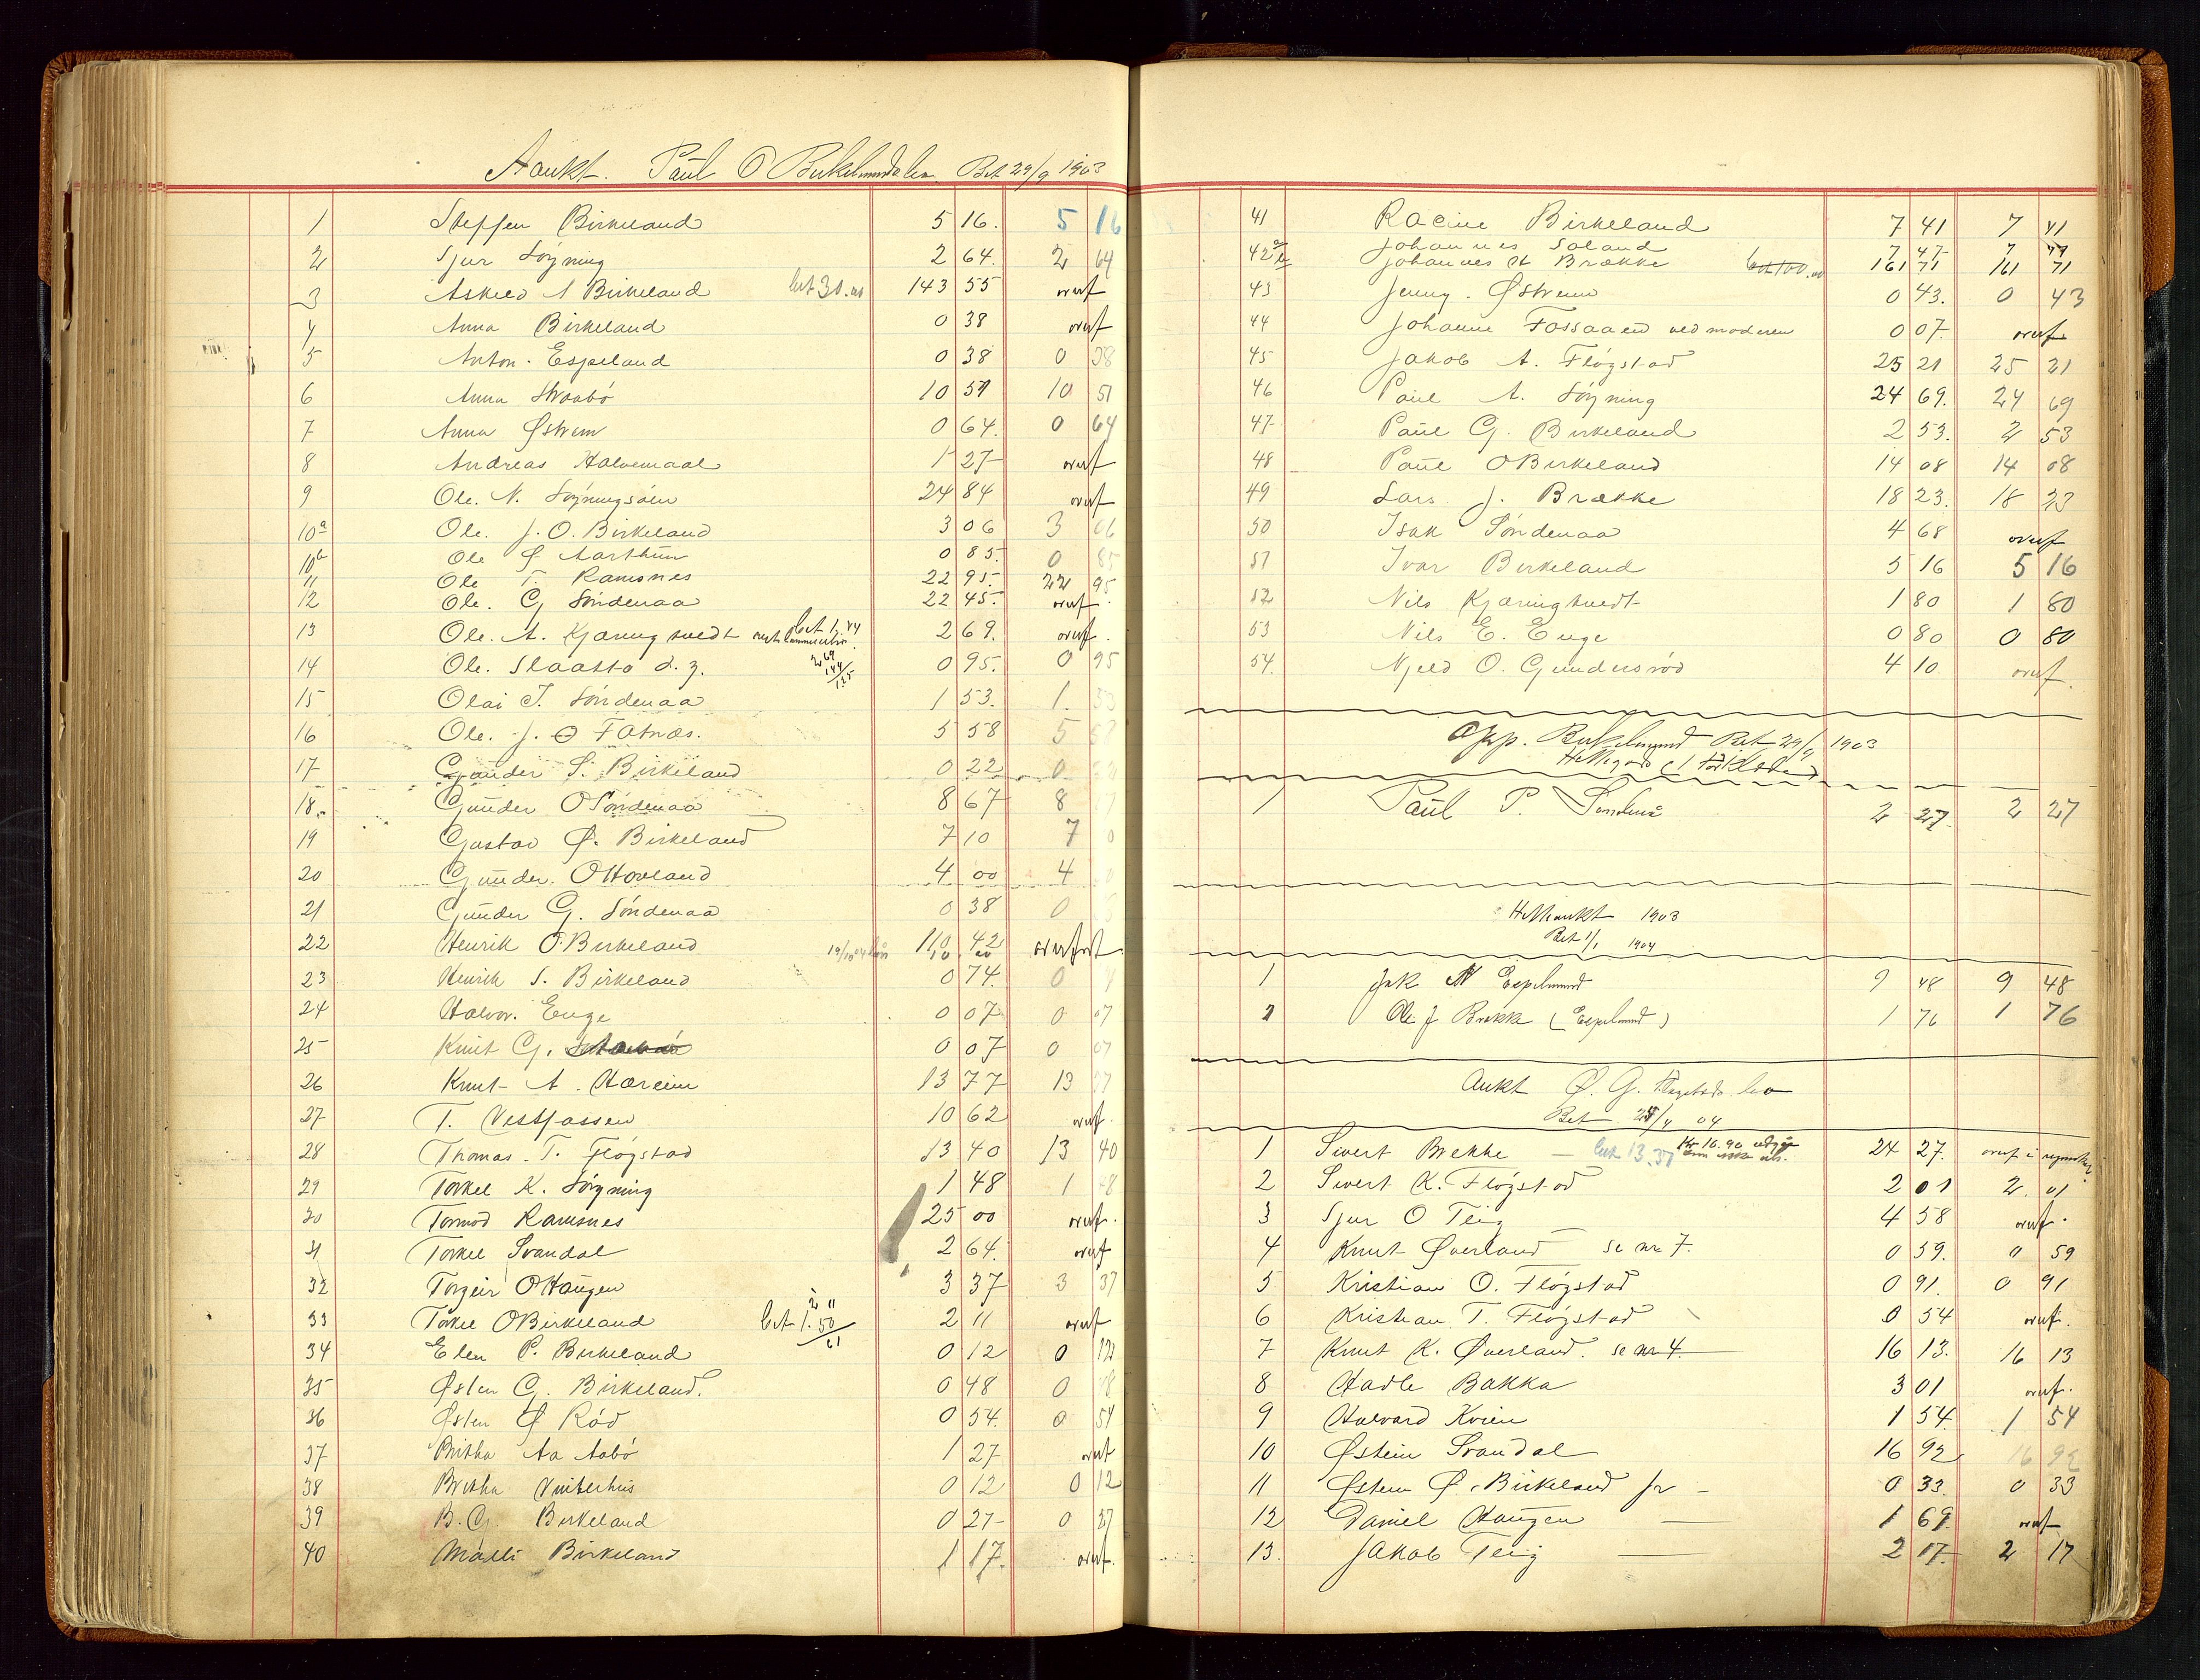 Aaukt. Paul O Birkelandalen Bet 29/9 1903
1 Steffen Birkeland 5 16. 5 16
2 Sjur Löyning 2 64. 2 64
3 Askild A Birkeland bet 30.00 143 55 overf
4 Anna Birkeland 0 38 overf
5 Anton. Espeland 0 38 0 38
6 Anna Straabö 10 51 10 51
7 Anna Østrem 0 64. 0 64
8 Andreas Halvemaal 1 27 overf
9 Ole. N. Löyningsöen 24 84 overf
10a Ole. J. O. Birkeland 3 06 3 06
10b Ole Ø Aarthun 0 85. 0 85
11 Ole T. Ramsnes 22 95. 22 95
12 Ole. G Söndenaa 22 45. overf.
13 Ole. A. Kjæringtvedt bet 1.44 2 69. overf.
14 Ole. Slaatto d. y. 0 95. 0 95
15 Olai T. Söndenaa 1 53. 1. 53
16 Ole. J. O Fatnæs. 5 58 5 58
17 Gunder S. Birkeland 0 22 0 22
18. Gunder O Söndenaa 8 67 8
19 Gustav Ø. Birkeland 7 10 7 0
20 Gunder. O Hovland 4 00 4 0
21 Gunder G. Söndenaa 0 38 0
22 Henrik O. Birkeland 110 42 overført
23 Henrik S. Birkeland 0 74. 0
24 Halvor. Enge 0 07 0 07
25 Knut G. 0 07 0 07
26 Knut A. Hareim 13 77 13 77
27 T. Vestfossen 10 62 overf.
28 Thomas. T. Flögstad 13 40 13 40
29 Torkel K. Löyning 1 48 1 48
30 Tormod Ramsnes 25 00 overf.
31 Torkel Svandal 2 64. overf
32 Torgeir O Haugen 3 37 3 37
33 Torkel O Birkeland bet 1.50 2 11 overf
34 Elen P. Birkeland 0 12 0 12
35 Østen G. Birkeland. 0 48 0 48
36 Østen Ø Röd 0 54. 0 54
37 Britha Aa Aabö 1 27 overf
38 Britha Vinterhus 0 12 0 12
39 B. G. Birkeland 0 27 0 27
40 Malli Birkeland 1 17. overf.
41 Racine Birkeland 7 41 7 41
42a Johannes Soland 7 47 7 47
b Johannes A Brække bet 100.00 161 71 161 71
43 Jenny. Østrem 0 43. 0 43
44 Johanne Fossaaen ved moderen 0 07. overf
45 Jakob A. Flögstad 25 21 25 21
46 Paul A. Löyning 24 69. 24 69
47 Paul G. Birkeland 2 53. 2 53
48 Paul O Birkeland 14 08 14 08
49 Lars J. Brække 18 23. 18 23
50 Isak Söndenaa 4 68 overf
51 Ivar Birkeland 5 16 5 16
52 Nils Kjæringtvedt 1 80 1 80
53 Nils E. Enge 0 80 0 80
54. Njeld O. Gundersröd 4 10 overf.
Opp. Birkeland Bet 29/9 1903
1 Paul P. Söndenaa 2 27. 2 27
1903
Bet 1/1 1904
1 Jak N Espeland 9 48 9 48
2 Ole J Brekke (Espeland) 1 76 1 76
Aukt Ø. G.
Bet 04
1 Sivert Brekke — bet 13.37 24 27. overf
2 Sivert K. Flögstad 2 01 2 01
3 Sjur O Teig 4 58 overf.
4 Knut Øverland se nr 7. 0 59. 0 59
5 Kristian O. Flögstad 0 91. 0 91
6 Kristian T. Flögstad 0 54 overf.
7 Knut K. Øverland. se nr 4. 16 13. 16 13
8 Hadle Bakka 3 01 overf.
9 Halvard Kvien 1 54. 1 54
10 Østein Svandal 16 92 16 92
11 Østein Ø. Birkeland Jr — 0 33. 0 33
12 Daniel Haugen — 1 69. overf
13. Jakob Teig — 2 17. 2 17